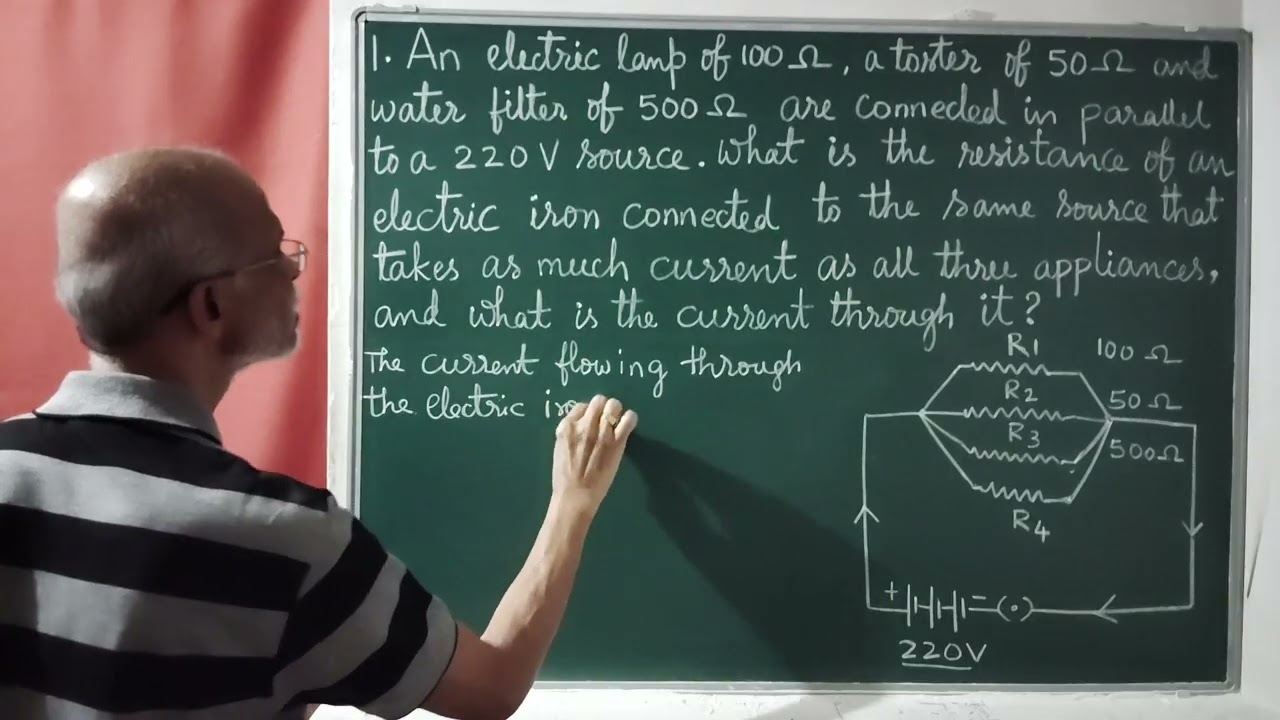 1. An electric lamp of 100 Ω, a toster of 50 Ω and
water filter of 500 Ω are connected in parallel
to a 220 V source. What is the resistance of an
electric iron connected to the same source that
takes as much current as all three appliances,
and what is the current through it?
The current flowing through
the electric iro
R1 100 Ω
R2 50 Ω
R3 500 Ω
R4
+ - (•)
220V